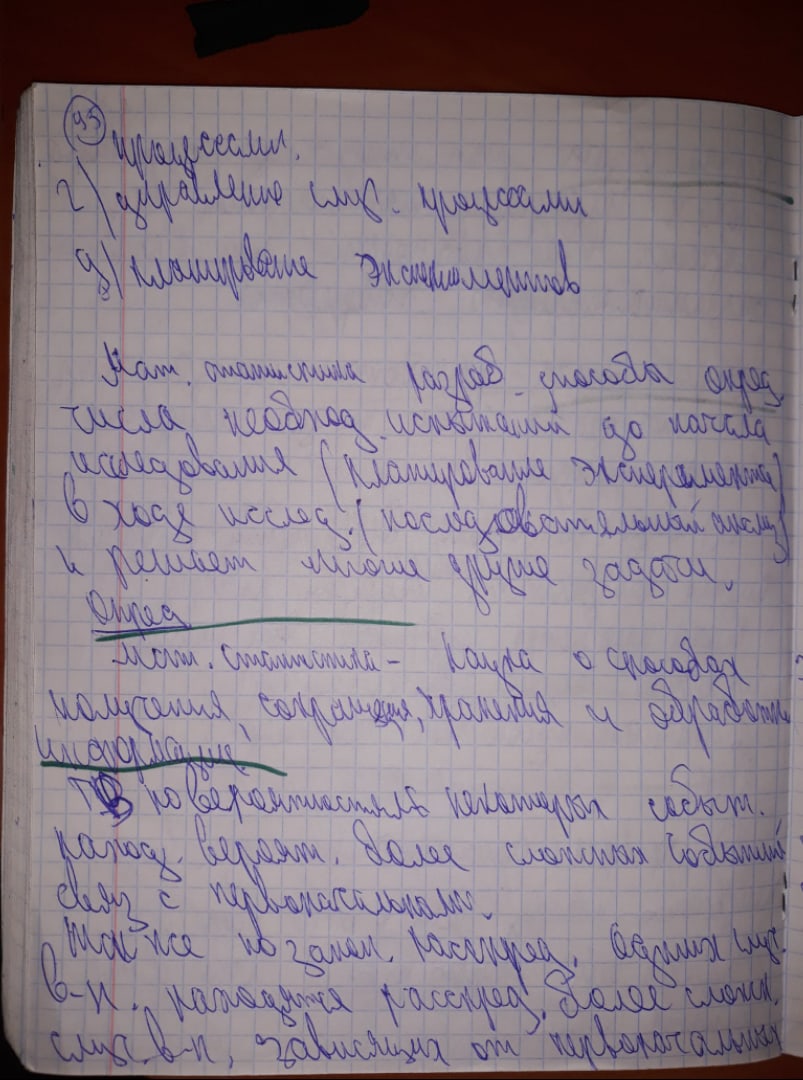 93
процессами.
г) управление случ. процессами
д) планирование экспериментов
Мат. статистика разраб. способы опред.
числа необход. испытаний до начала
исследования (планирование эксперимента)
в ходе исслед. (последовательный анализ)
и решает многие другие задачи.
Опред
Мат. статистика - наука о способах
получения, сокращения, хранения и обработки
информации
ТВ по вероятностям некоторых событ.
наход. вероят. более сложных событий
связ с первоначальными.
Так же по закон. распред. одних случ.
в-н. находятся распред. более сложн.
случ. в-н, зависящих от первоначальных